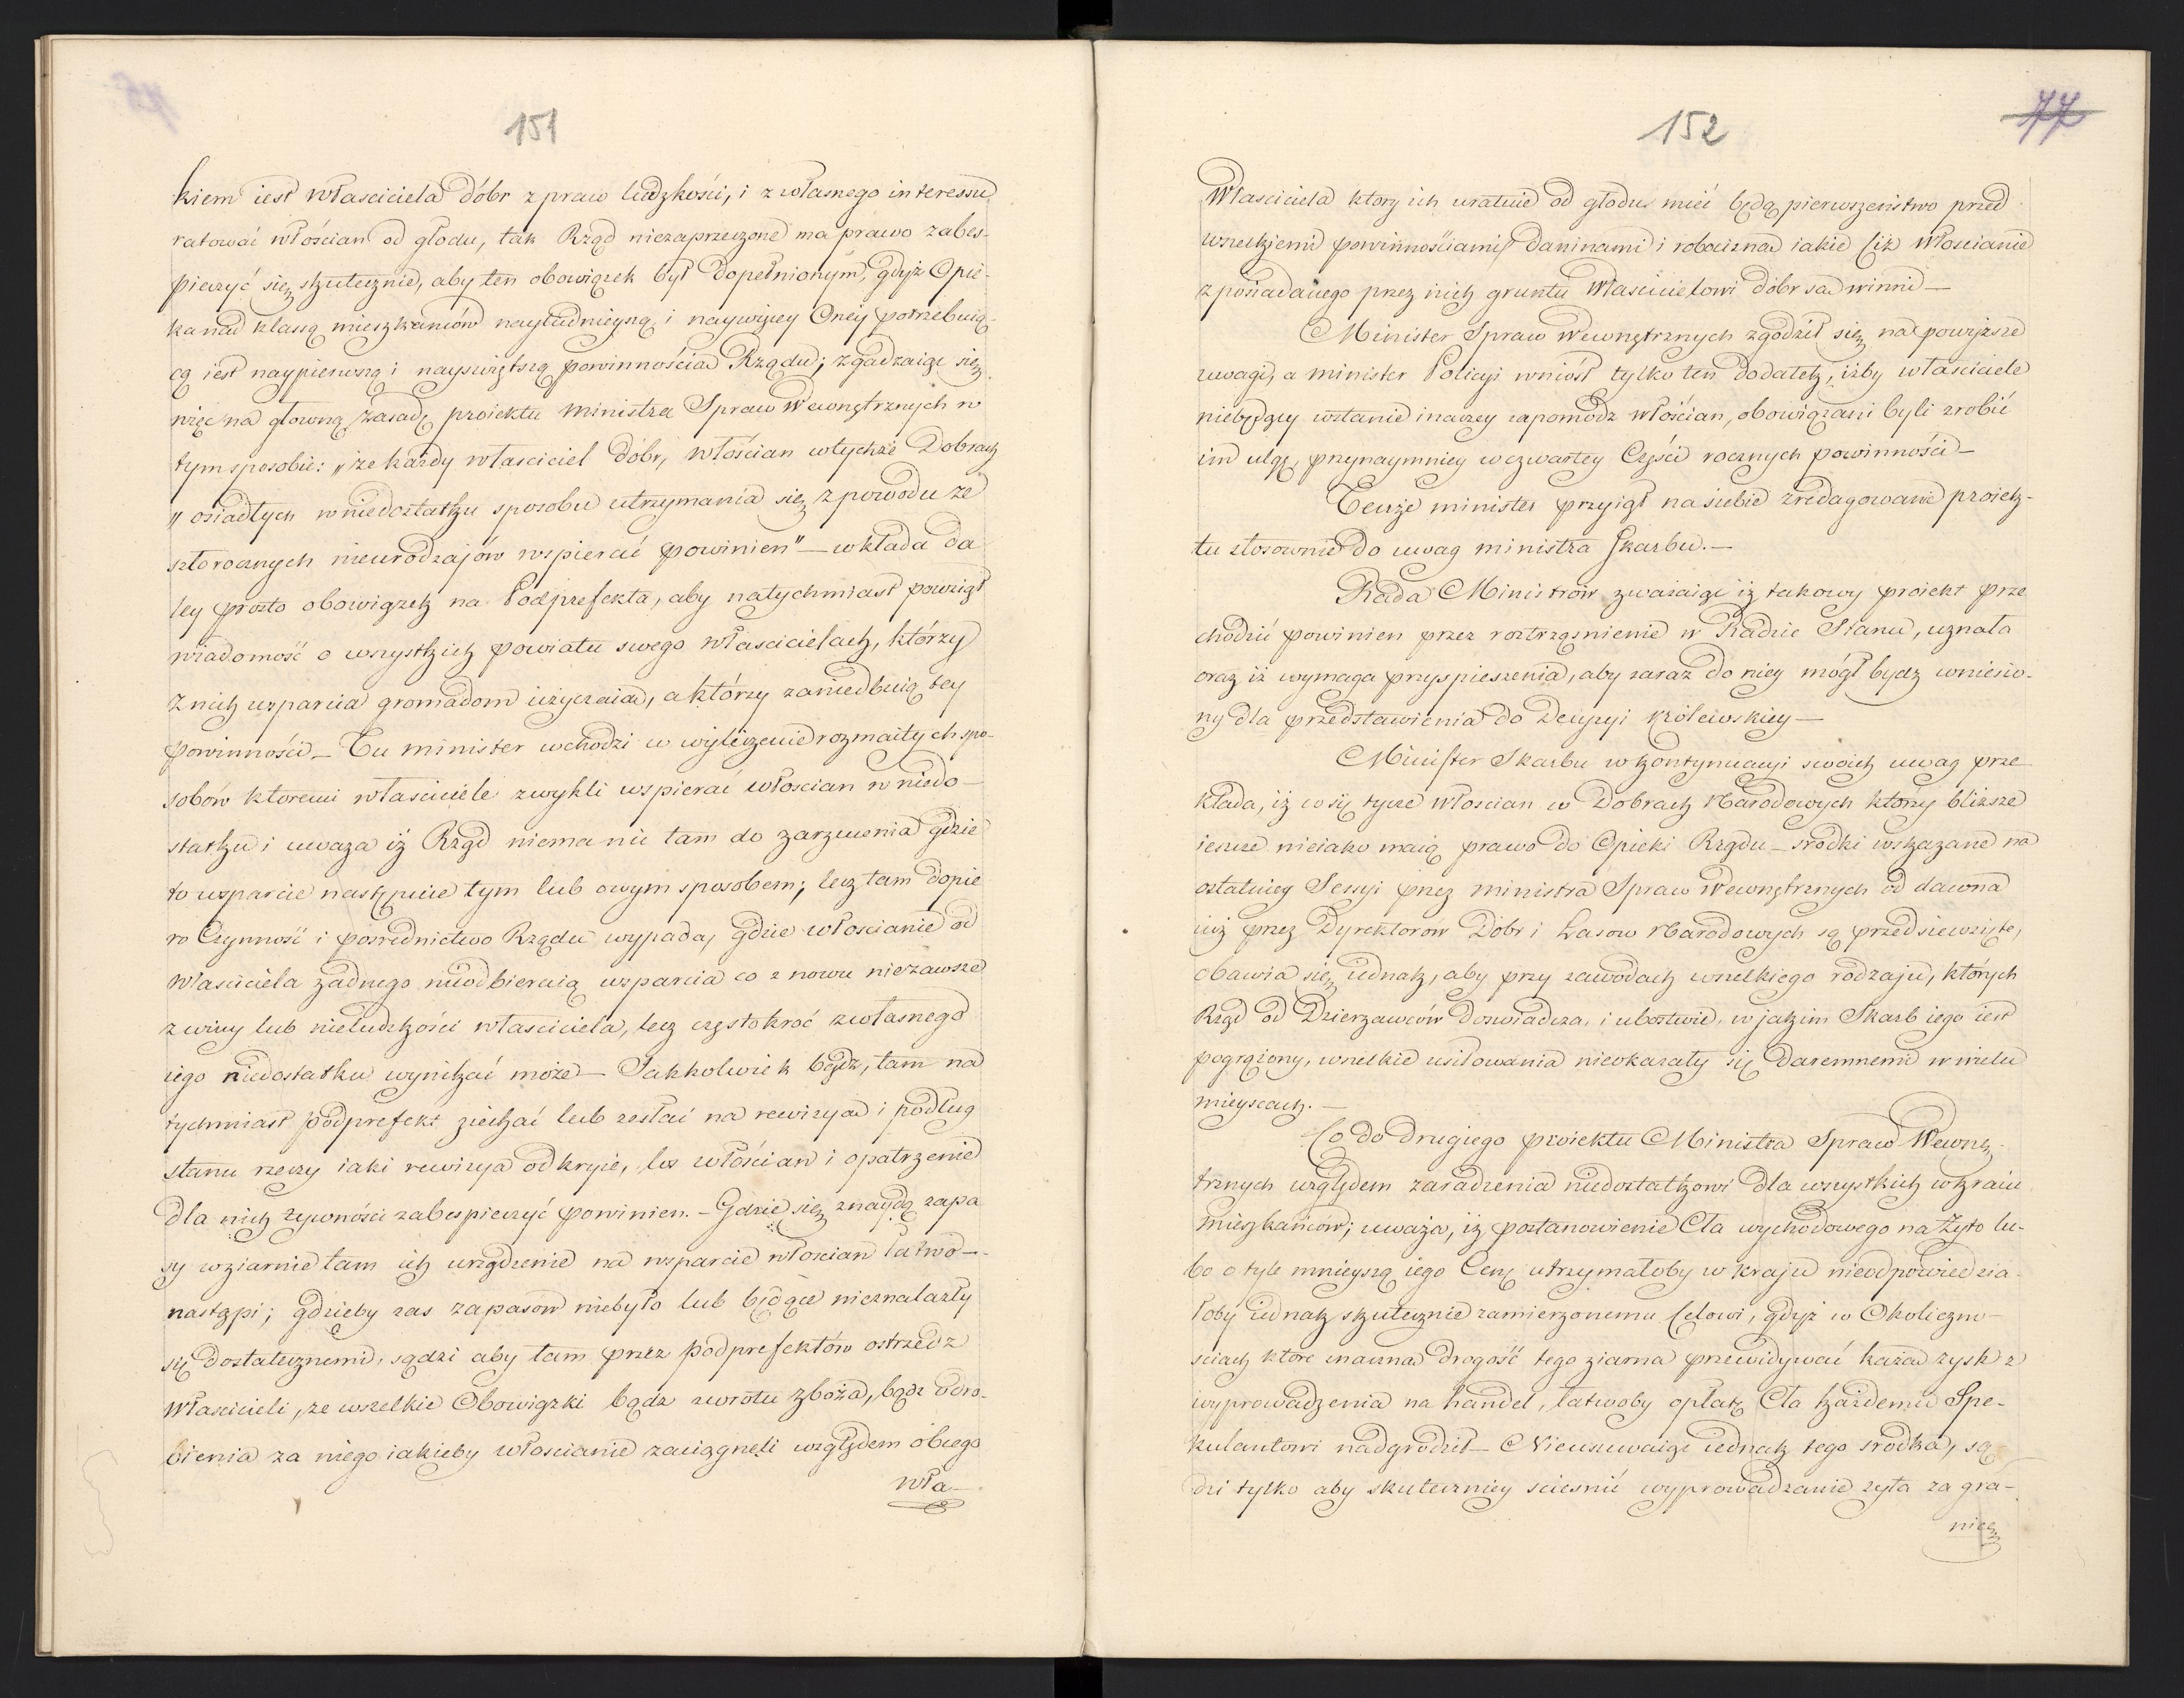 151
kiem iest Właściciela dóbr z praw ludzkości, i z własnego interessu
ratować włościan od głodu, tak Rząd niezaprzeczone ma prawo zabes-
pieczyć się skutecznie, aby ten obowiązek był dopełnionym, gdyż Opie-
ka nad klassą mieszkańców nayludnieyszą i naywięcey Oney potrzebuią-
cą iest naypierwszą i nayswiętszą powinnościa Rządu; zgadzaiąc się
więc na głowną zasadę proiektu Ministra Spraw Wewnętrznych w
tym sposobie: „że każdy właściciel dóbr, włościan w tychże Dobrach
„osiadłych w niedostatku sposobu utrzymania się z powodu ze
szłorocznych nieurodzajów wspierać powinien" — wkłada da
ley prosto obowiązek na Podprefekta, aby natychmiast powziął
wiadomość o wszystkich powiatu swego właścicielach, którzy
z nich wsparcia gromadom użyczaia, a którzy zaniedbuią tey
powinności — Tu minister wchodzi w wyliczenie rozmaitych spo-
sobów ktoremi właściciele zwykli wspierać włościan w niedo-
statku i uważa iż Rząd niema nic tam do zarzucenia gdzie
to wsparcie następuie tym lub owym sposobem; lecz tam dopie
ro Czynność i posrednictwo Rządu wypada, gdzie włościanie od
Właściciela żadnego nieodbieraią wsparcia co znowu niezawsze
z winy lub nieludzkości właściciela, lecz częstokroć z własnego
iego niedostatku wynikać może — Jakkolwiek bądz, tam na
tychmiast podprefekt ziechać lub zesłać na rewizya i podług
stanu rzeczy iaki rewizya odkryie, los włościan i opatrzenie
dla nich żywności zabespieczyć powinien. — Gdzie się znaydą zapa
sy w ziarnie tam ich urządzenie na wsparcie włościan łatwo —
nastąpi; gdzieby zas zapasow niebyło lub będące nieznalazły
się dostatecznemi, sądzi aby tam przez podprefektów ostrzedz
Właścicieli, ze wszelkie Obowiązki bądz zwrotu zboża, bądz odro-
bienia za niego iakieby włościanie zaciągneli względem obcego
Wła-
152
77
Właściciela ktory ich uratuie od głodu mieć będą pierwszeństwo przed
wszelkiemi powinnościami daninami i robocizna iakie ciż włościanie
z posiadanego przez nich gruntu Właścicielowi dóbr sa winni —
Minister Spraw Wewnętrznych zgodził się na powyższe
uwagi, a minister Policyi wniósł tylko ten dodatek, iżby właściciele
niebędący wstanie inaczey zapomódz włościan, obowiązani byli zrobić
im ulgę, przynaymniey w czwartey Części rocznych powinności —
Tenże minister przyiął na siebie zredagowanie proiek-
tu stosownie do uwag ministra Skarbu. —
Rada Ministrów zważaiąc iż takowy proiekt prze
chodzić powinien przez roztrząsnienie w Radzie Stanu, uznała
oraz iż wymaga przyspieszenia, aby zaraz do niey mógł bydz wniesio-
ny dla przedstawienia do Decyzyi Królewskiey —
Minister Skarbu w kontynuacyi swoich uwag prze
kłada, iż co się tycze włościan w Dobrach Narodowych ktorzy bliższe
ieszcze nieiako maią prawo do Opieki Rządu — srodki wskazane na
ostatniey Sessyi przez ministra Spraw Wewnętrznych od dawna
iuż przez Dyrektorów Dóbr i Lasow Narodowych są przedsiewzięte,
obawia się iednak, aby przy zawodach wszelkiego rodzaju, których
Rząd od Dzierzawców doswiadcza, i ubostwie, w jakim Skarb iego iest
pogrążony, wszelkie usiłowania nieokazały się daremnemi w wielu
mieyscach. —
Co do drugiego proiektu Ministra Spraw Wewnę-
trznych względem zaradzenia niedostatkowi dla wszystkich w kraiu
mieszkańców; uważa, iż postanowienie Cła wychodowego na Żyto lu-
bo o tyle mnieyszą iego Cenę utrzymałoby w kraju nieodpowiedzia-
łoby iednak skutecznie zamierzonemu Celowi, gdyż w Okoliczno-
sciach ktore znaczna drogość tego ziarna przewidywać każa zysk z
wyprowadzenia na handel, łatwoby opłatę Cła każdemu Spe-
kulantowi nadgrodził — Nieusuwaiąc iednak tego srodka, są
dzi tylko aby skuteczniey sciesnić wyprowadzanie żyta za gra-
nicę